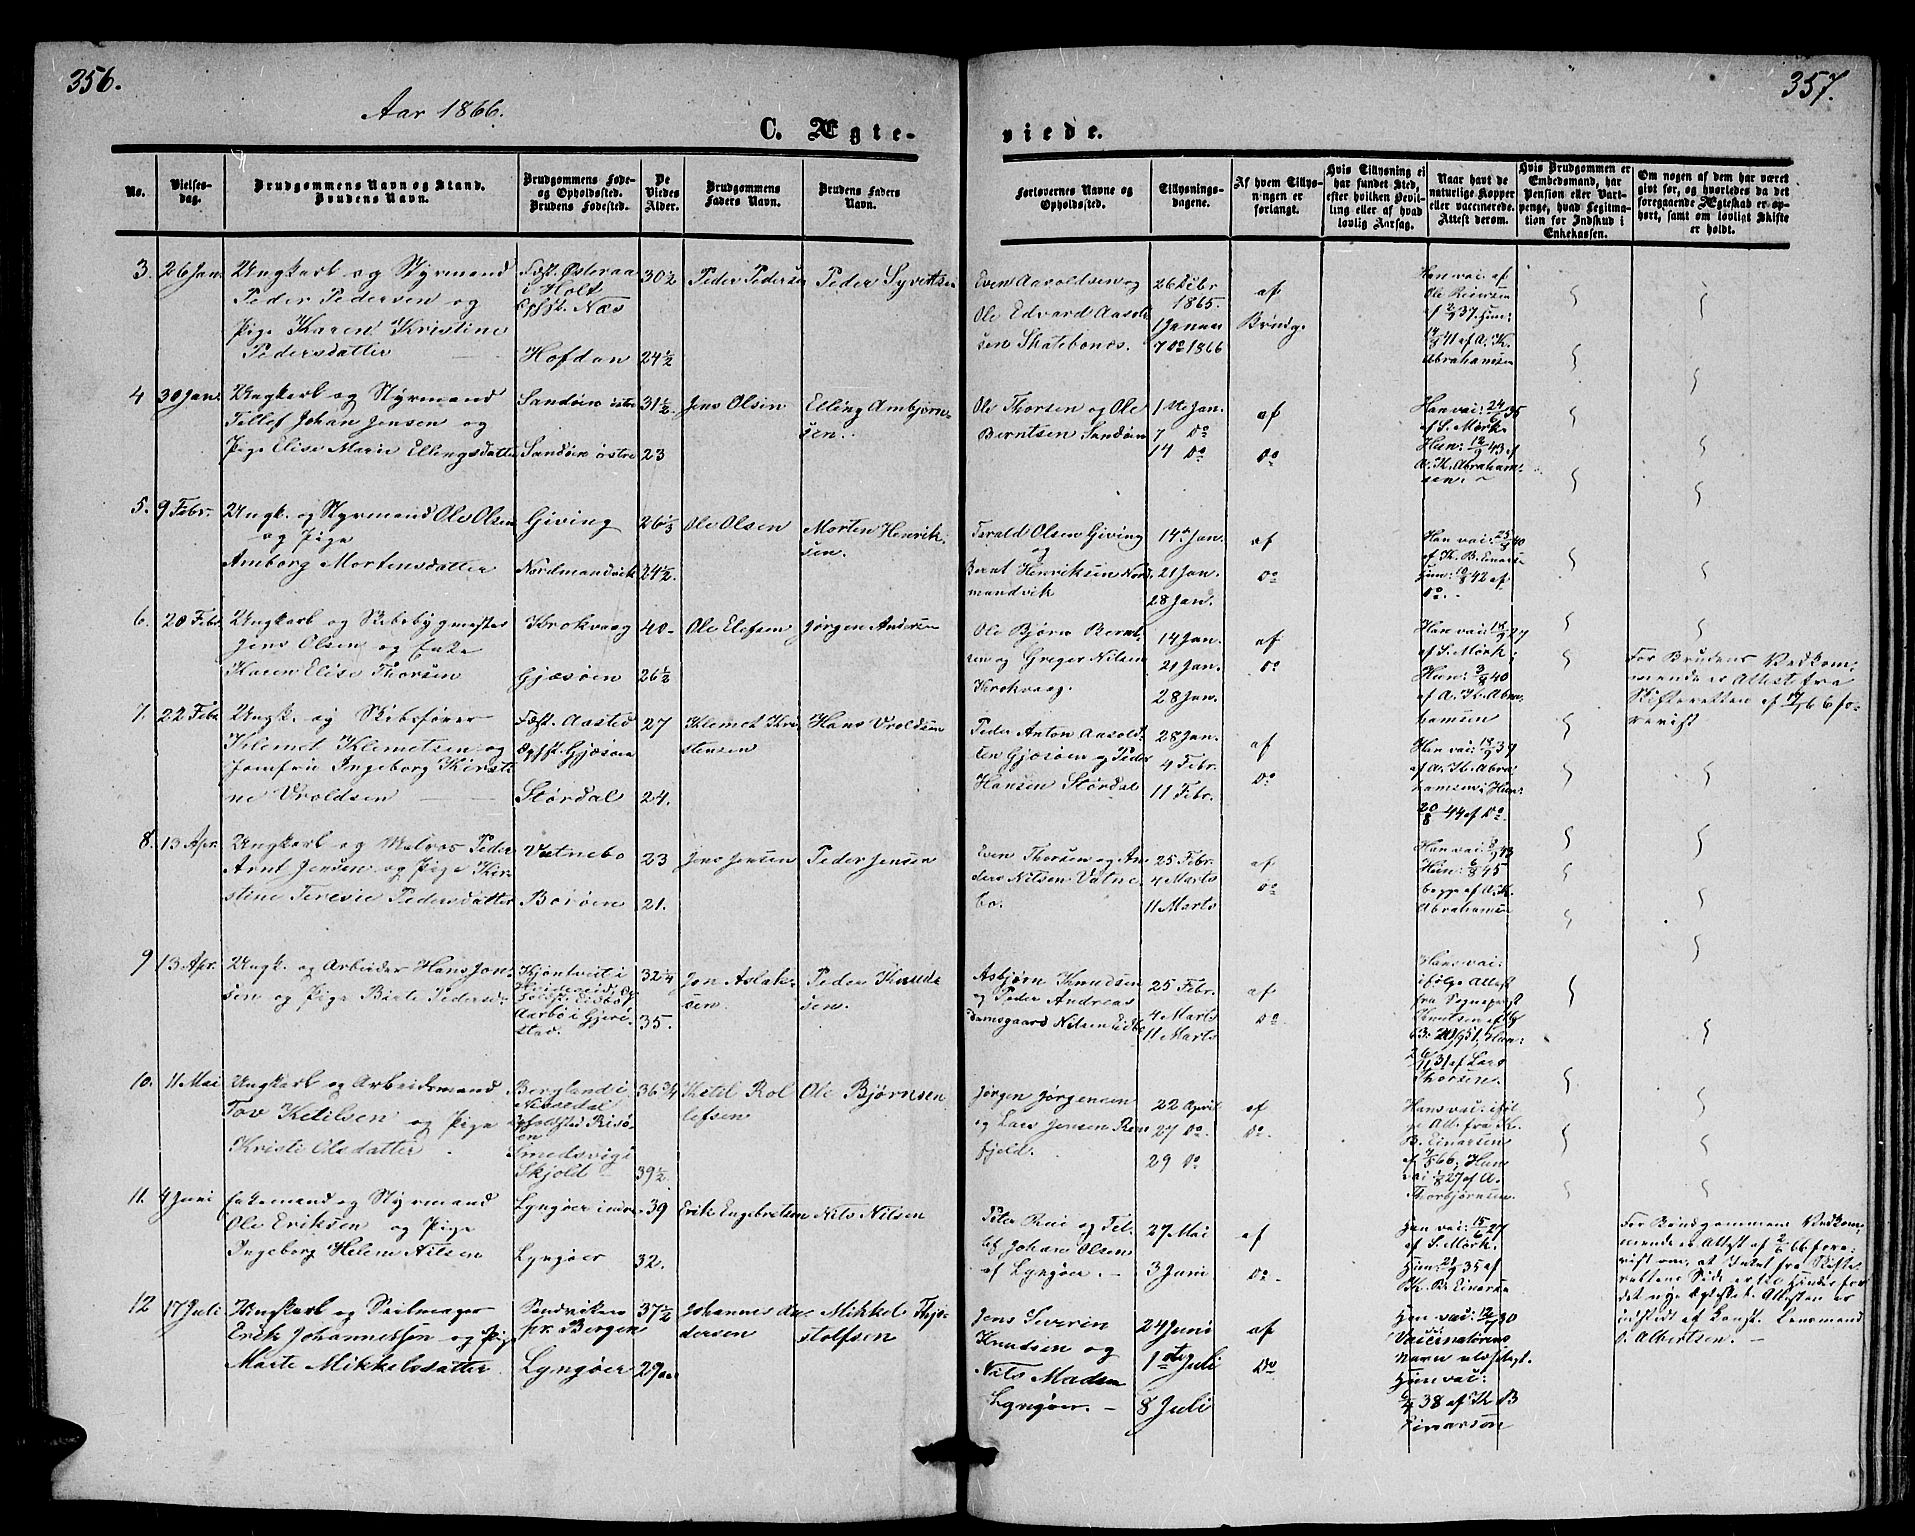 356.
357.
Aar 1866.
C. Ægteviede.
No.
Vielsesdag.
Brudgommens Navn og Stand.
Brudens Navn.
Brudgommens Føde-
og Opholdssted.
Brudens Fødested.
De
Viedes
Alder.
Brudgommens
Faders Navn.
Brudens Faders
Navn.
Forlovernes Navne og
Opholdssted.
Tillysnings-
dagene.
Af hvem Tillys-
ningen er
forlangt.
Hvis Tillysning ei
har fundet Sted,
efter hvilken Bevil-
ling eller af hvad
lovlig Aarsag.
Naar havt de
naturlige Kopper
eller vaccinerede.
Attest derom.
Hvis Brudgommen er
Embedsmand, har
Pension eller Vart-
penge, hvad Legitima-
tion for Indskud i
Enkekassen.
Om nogen af dem har været
gift før, og hvorledes da det
foregaaende Ægteskab er op-
hørt, samt om lovligt Skifte
er holdt.
3. 26 Jan. Ungkarl og Styrmand
Peder Pedersen og
Pige Karen Kristine
Pedersdatter
Fæst. Østeraa
i Holt
Opst. Næs
Hofdan
30½
24½
Peder Pederse
Peder Syvertsen
Even Aaroldsen og
Ole Edvard Aarold
sen Skatebones.
26 Debr
1865.
1 Januar
7 Do 1866
af
Brudg.
Han vac. af
Ole Reiersen
af 2/9 37. Hun:
14/9 41 af A. K.
Abrahamsen
4 30 Jan. Ungkarl og Styrmand
Tellef Johan Jensen og
Pige Elise Marie Ellingsdatter
Sandøen østre
Sandøen østre
31½
23
Jens Olsen
Elling Ambjørn-
sen.
Ole Thorsen og Ole
Berntsen Sandøen
1ste Jan.
7 Do
14 Do
af
Do
Han vac: 24/6 35
af S. Mørk.
Hun: 12/9 43 af
A. K. Abraham-
sen.
5. 9 Febr. Ungk. og Styrmand Ole Olsen
og Pige
Amborg Mortensdatter
Gjiving
Nordmandvik
26⅓
24½.
Ole Olsen
Morten Henrik-
sen.
Terald Olsen Gjiving
og
Bernt Henriksen Nord-
mandvik
14de Jan.
21 Jan.
28 Jan.
af
Do
Han vac: 23/8 40
af K. B. Einarse
Hun: 10/8 42 af
Do.
6. 20 Febr. Ungkarl og Skibsbygmester
Jens Olsen og Enke
Karen Elise Thorsen
Krokvaag
Gjæsøen
40-
26½
Ole Elefsen
Jørgen Andersen
Ole Bjørn Bernt-
sen og Greger Nilsen
Krokvaag.
14 Jan.
21 Jan.
28 Jan.
af
Do
Han vac: 18/9 27
af S. Mørk:
Hun: 3/8 40
af A. K. Abra-
hamsen
For Brudens Vedkom-
mende er Attest fra
Skifteretten af 19/1 66 fo-
revist
7. 22 Febr. Ungk. og Skibsfører
Klemet Klemetsen og
Jomfru Ingeborg Kirsti-
ne Vroldsen
Fæst. Aasted
Opst. Gjæsøen
Stórdal
27
24.
Klemet Kri-
stensen
Hans Vroldsen
Peder Anton Aarold-
sen Gjæsøen og Peder
Hansen Stórdal
28 Jan.
4 Febr.
11 Febr.
af
Do
Han vac: 18/9 39
af A. K. Abra
hamsen; Hun:
20/8 44 af Do
8. 13 Apr. Ungkarl og Matros Peder
Arnt Jensen og Pige Kir-
stine Teresie Pedersdatter
Vatnebo
Borøen
23
21.
Jens Jensen
Peder Jensen
Even Thorsen og An
ders Nilsen Vatne
bo.
25 Febr.
4 Marts
11 Marts
af
Do
Han vac: 8/9 43
Hun: 6/8 45
begge af A. K.
Abrahamsen
9 13 Apr. Ungk. og Arbeider Hans Jon-
sen og Pige Birte Pedersd
Aarbø i Gjere-
stad.
32¼
35.
Jon Aslak-
sen
Peder Knud
sen.
Asbjørn Knudsen
og Peder Andreas
Damsgaard Nilsen Eidbo
25 Febr.
4 Marts
11 Marts
af
Do.
Han vac:
ifølge Attest
fra Sognepræst
Knutsen
Thorsen.
10. 11 Mai Ungkarl og Arbeidsmand
Tov Ketilsen og Pige
Kristi Olsdatter.
Bergland i
Nissedal
Opholdsted Risø-
en
Smedsvig i
Skjold
36¾
39½
Ketil Rol
lefsen
Ole Bjørnsen
Jørgen Jørgensen
og Lars Jensen Ren
fjeld.
22 April
27 Do.
29 Do
af
Do.
Han vac: iføl
ge Att. fra K.
B. Einarsen
af 7/5 66; Hun
vac 1/8 27 af A.
Thorbjørnsen.
11. 4 Juni Enkemand og Styrmand
Ole Eriksen og Pige
Ingeborg Helene Nilsen
Lyngøer indre
Lyngøer
39
32.
Erik Engebretsen
Nils Nilsen
Peter Rui og Tel-
lef Johan Olsen
af Lyngøer.
27 Mai
3 Juni
af
Do
Han vac: 15/6 27
af S. Mørk.
Hun: 21/9 35 af
K. B. Einarse
For Brudgommens Vedkom-
mende er Attest af 2/6 66 fore-
vist om, at Intet fra Skifte-
rettens Side er til Hinder for
det nye Ægtesk. Attesten er
udstedt af Const. Lensmand
O. Albertsen.
12 17 Juli Ungkarl og Seilmager
Erik Johannessen og Pige
Marte Mikkelsdatter
Sandviken
pr. Bergen
Lyngøer
37½
29
Johannes An-
dersen
Mikkel Thjo-
stolfsen
Jens Severin
Knudsen og
Nils Madsen
Lyngøer.
24 Juni
1ste Juli
8 Juli
af
Do
Han vac: 12/7 30
Vaccinatørens
Navn ulæseligt.
Hun vac:
6/4 38 af K B
Einarson